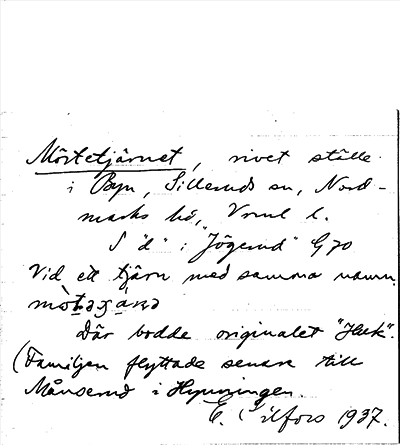 Mörtetjärnet, rivet ställe
i Byn, Silleruds sn, Nord-
marks hd, Vrml l.
S "d" i "Jögerud" G70
Vid ett tjärn med samma namn.
Där bodde originalet "Huk".
(Familjen flyttade senare till
Månserud i Hynningen.
E. Cilfors 1937.